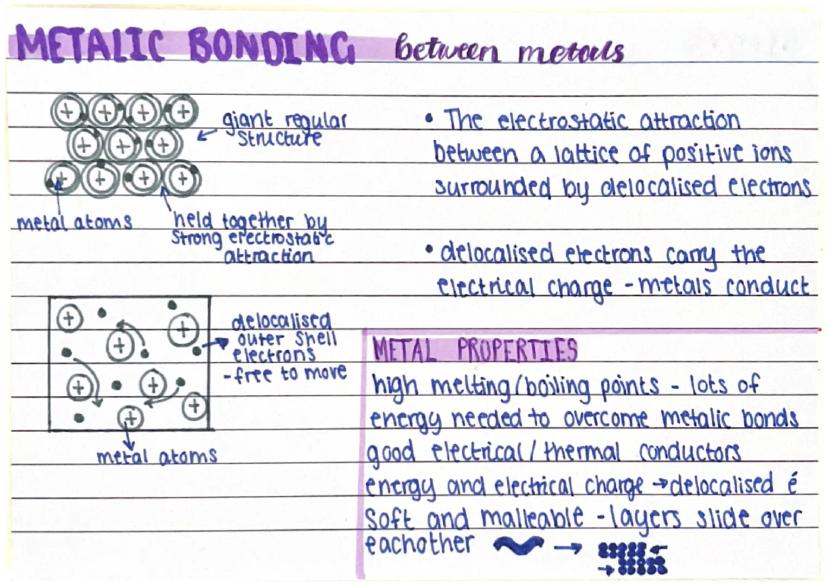 METALIC BONDING between metals
giant regular
structure
metal atoms
held together by
strong electrostatic
attraction
• The electrostatic attraction
between a lattice of positive ions
surrounded by delocalised electrons
• delocalised electrons carry the
electrical charge - metals conduct
delocalised
outer shell
electrons
- free to move
metal atoms
METAL PROPERTIES
high melting/boiling points - lots of
energy needed to overcome metalic bonds
good electrical/thermal conductors
energy and electrical charge → delocalised é
soft and malleable - layers slide over
eachother